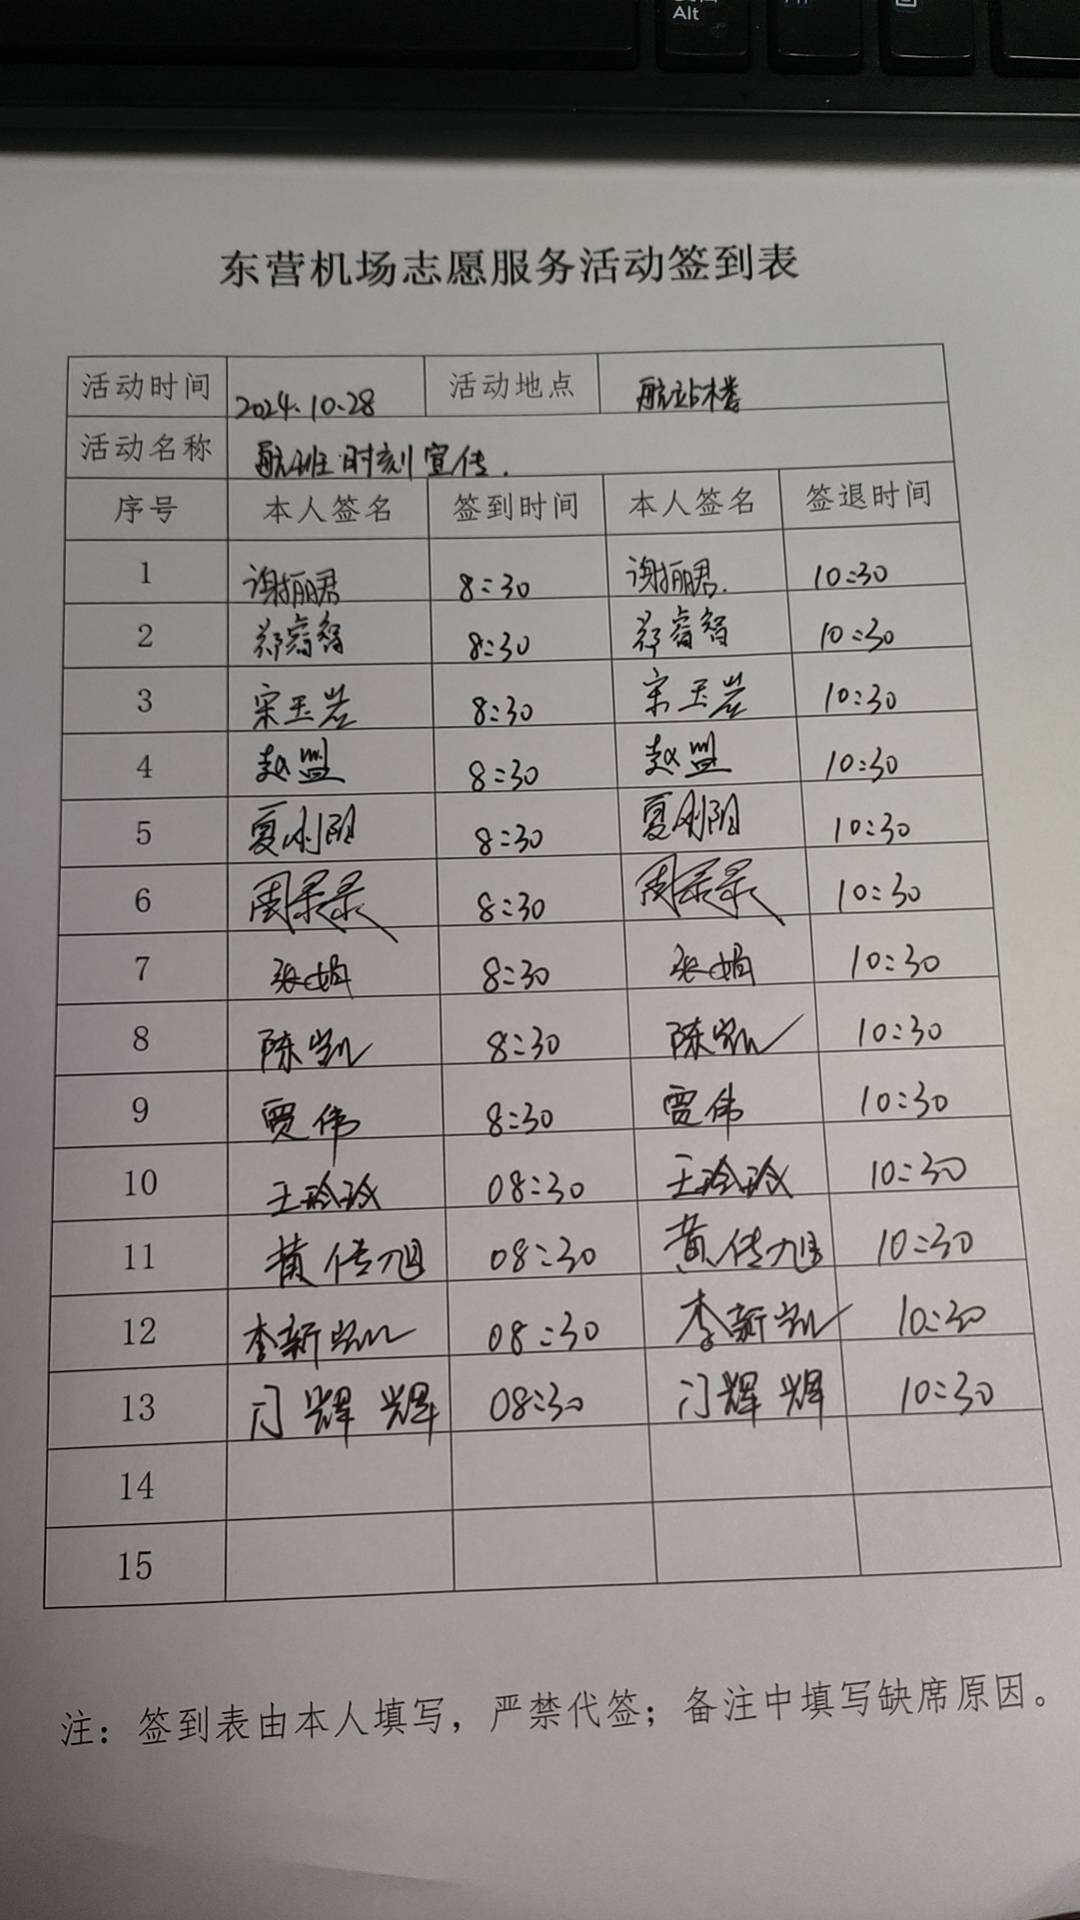 Alt
东营机场志愿服务活动签到表
活动时间 2024.10.28 活动地点 航站楼
活动名称 航班时刻宣传.
序号 本人签名 签到时间 本人签名 签退时间
1 谢丽君 8:30 谢丽君. 10:30
2 郑睿智 8:30 郑睿智 10:30
3 宋玉岩 8:30 宋玉岩 10:30
4 赵盟 8:30 赵盟 10:30
5 夏刚阳 8:30 夏刚阳 10:30
6 周录录 8:30 周录录 10:30
7 张娟 8:30 张娟 10:30
8 陈凯 8:30 陈凯 10:30
9 贾伟 8:30 贾伟 10:30
10 王玲玲 08:30 王玲玲 10:30
11 黄传旭 08:30 黄传旭 10:30
12 李新凯 08:30 李新凯 10:30
13 门辉辉 08:30 门辉辉 10:30
14
15
注：签到表由本人填写，严禁代签；备注中填写缺席原因。